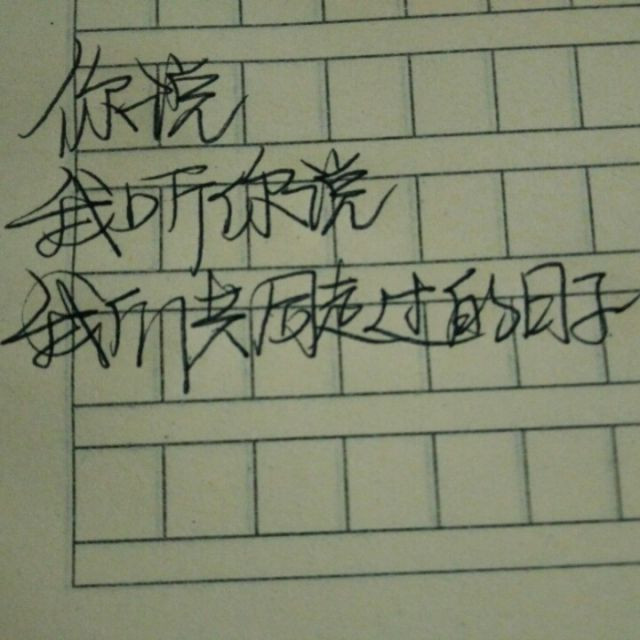 你说
我听你说
我们共同走过的日子